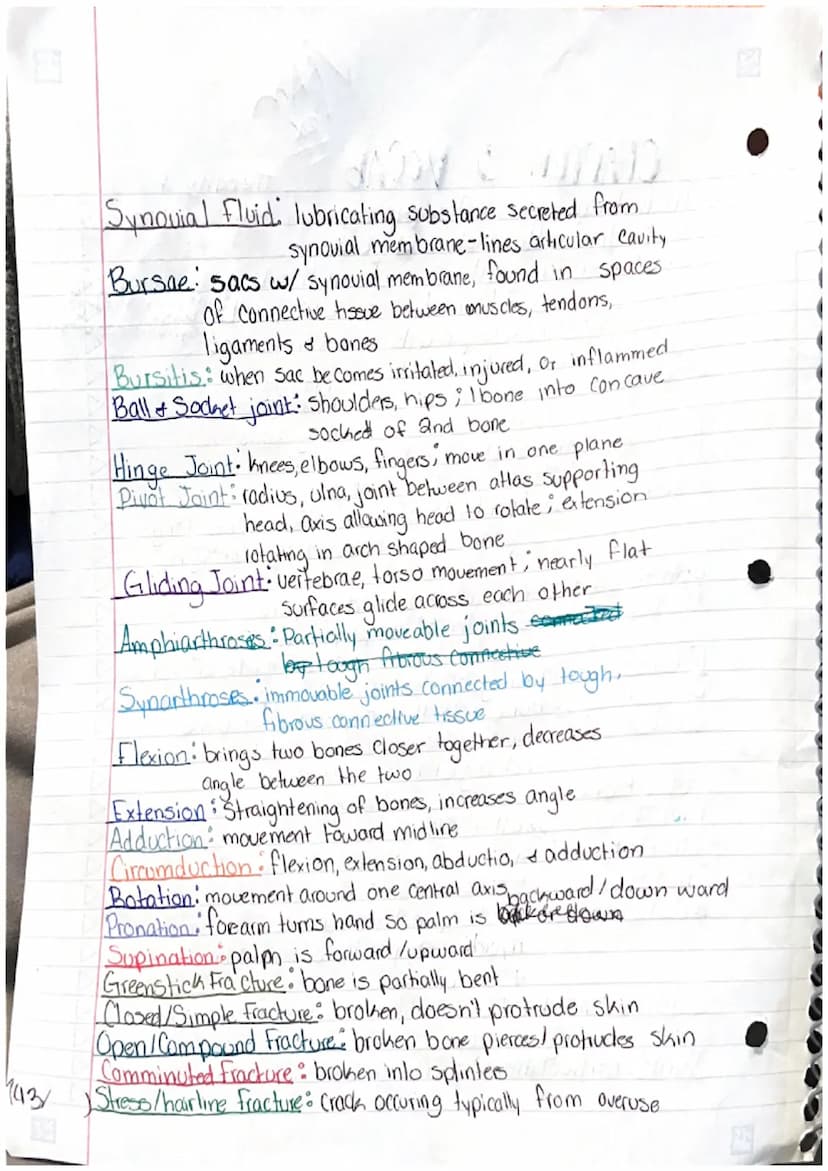 Synovial Fluid: lubricating substance secreted from
synovial membrane-lines articular cavity
Bursae: sacs w/ synovial membrane, found in spaces
of connective tissue between muscles, tendons,
ligaments & bones
Bursitis: when sac becomes irritated, injured, or inflammed
Ball & Socket joint: shoulders, hips; 1 bone into concave
socked of 2nd bone
Hinge Joint: knees, elbows, fingers; move in one plane
Pivot Joint: radius, ulna, joint between atlas supporting
head, axis allowing head to rotate; extension
rotating in arch shaped bone
Gliding Joint: vertebrae, torso movement; nearly flat
surfaces glide across each other
Amphiarthroses: Partially moveable joints connected
by tough fibrous connective
Synarthroses: immovable joints connected by tough,
fibrous connective tissue
Flexion: brings two bones closer together, decreases
angle between the two
Extension: Straightening of bones, increases angle
Adduction: movement toward midline
Circumduction: flexion, extension, abductio, & adduction
Rotation: movement around one central axis
backward/down ward
Pronation: forearm turns hand so palm is
Supination: palm is forward/upward
Greenstick Fracture: bone is partially bent
Closed/Simple Fracture: broken, doesn't protrude skin
Open/Compound Fracture: broken bone pierces/protrudes skin
Comminuted Fracture: broken into splintes
143/
Stress/hairline Fracture: Crack occuring typically from overuse